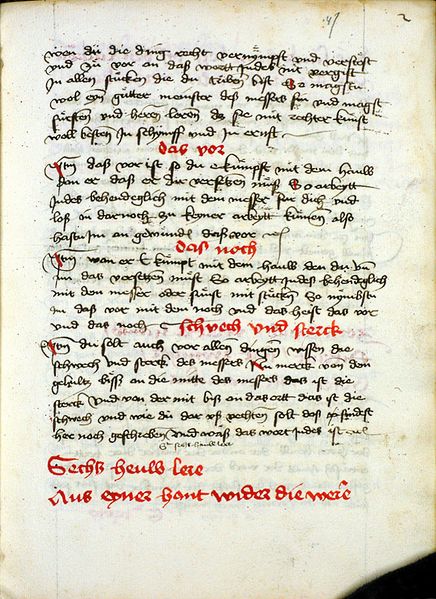 2
wen du die ding recht vernympst und verstöst
und zu vor an daß wortt Judes nit vergist
In allen stücken die du triben bist So magstu
wol eyn gütter meinster des messers sin und magst
fürsten und heren leren daz sie mit rechter kunst
woll besten In schympff und in ernst
das vor
Itm daß vor ist so du e kümpst mit dem hauw
dan er daß er dir versetzen muß So arbeytt
Judes behendeglich mit dem messer für dich und
loß in dar noch zu keyner arbeytt kumen also
hastu im an gewunnen daß vor
das noch
Itm wan er E kumpt mit dem hauw den du und
im das versetzen must So arbeytt Judes behendeglich
mit den messer oder sunst mit stücken So nymbstu
im daß vor mit den noch und das heist das vor
und das noch
schwech und sterck
Itm du solt auch vor allen dingen wissen die
schwech und sterck des messers Nu merck von dem
gehiltz biß an die mitte des messers das ist die
sterck und von dar mit biß an das ortt das ist die
schwech und wie du dar uß vechten solt das findest
her noch geschreben und waß das wort Judes ist
Sechs heuw lere
Aus eyner hant wider die were